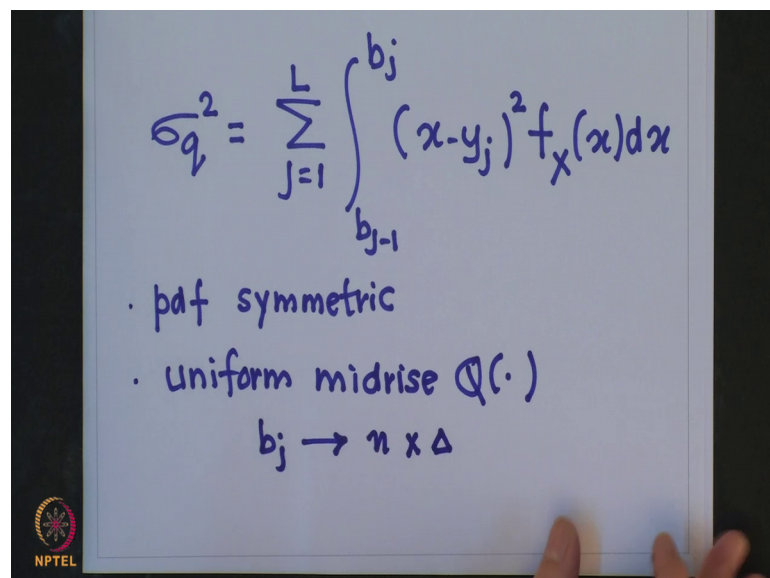 σq² = Σ_{j=1}^{L} ∫_{b_{j-1}}^{b_j} (x-y_j)² f_X(x)dx
· pdf symmetric
· uniform midrise Q(·)
b_j → n × Δ
NPTEL